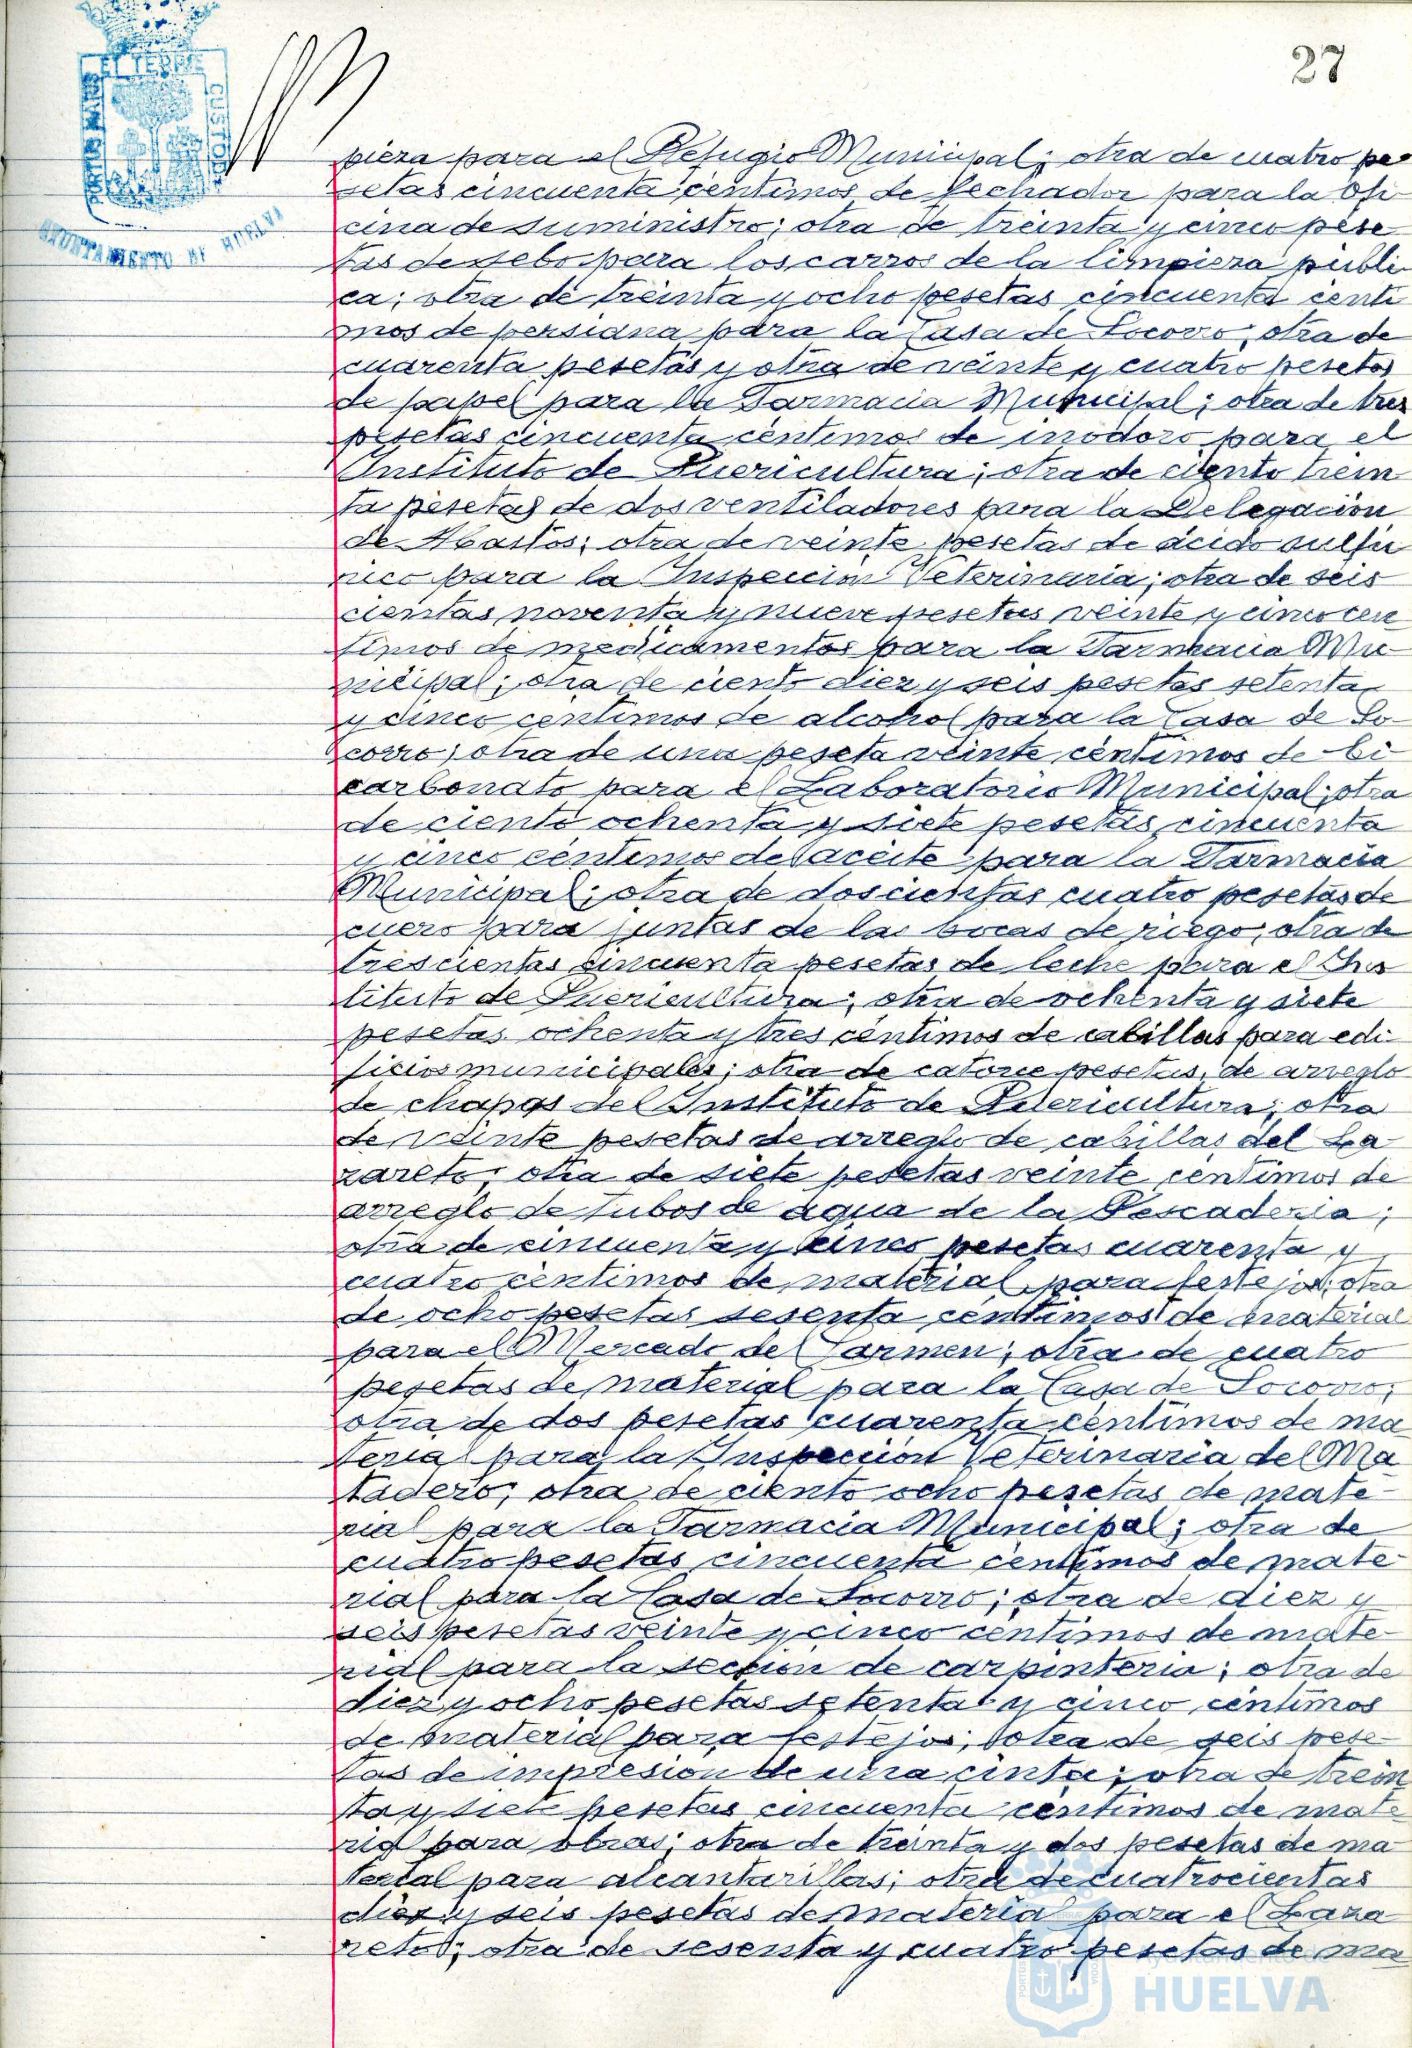 27
ET TERRE
PORTUS MARIS
CUSTODIA
AYUNTAMIENTO DE HUELVA
pieza para el Refugio Municipal; otra de cuatro pe-
setas cincuenta céntimos de fechador para la Ofi-
cina de suministro; otra de treinta y cinco pese-
tas de sebo para los carros de la limpieza públi-
ca; otra de treinta y ocho pesetas cincuenta cénti
mos de persiana para la Casa de Socorro; otra de
cuarenta pesetas y otra de veinte y cuatro pesetas
de papel para la Farmacia Municipal; otra de tres
pesetas cincuenta céntimos de inodoro para el
Instituto de Puericultura; otra de ciento trein-
ta pesetas de dos ventiladores para la Delegación
de Abastos; otra de veinte pesetas de ácido sulfú
rico para la Inspección Veterinaria; otra de seis
cientas noventa y nueve pesetas veinte y cinco cén
timos de medicamentos para la Farmacia Mu-
nicipal; otra de ciento diez y seis pesetas setenta
y cinco céntimos de alcohol para la Casa de So-
corro; otra de una peseta veinte céntimos de bi-
carbonato para el Laboratorio Municipal; otra
de ciento ochenta y siete pesetas cincuenta
y cinco céntimos de aceite para la Farmacia
Municipal; otra de doscientas cuatro pesetas de
cuero para juntas de las bocas de riego; otra de
trescientas cincuenta pesetas de leche para el Ins
tituto de Puericultura; otra de ochenta y siete
pesetas ochenta y tres céntimos de cabillas para edi-
ficios municipales; otra de catorce pesetas, de arreglo
de chapas del Instituto de Puericultura; otra
de veinte pesetas de arreglo de cabillas del La-
zareto; otra de siete pesetas veinte céntimos de
arreglo de tubos de agua de la Pescadería;
otra de cincuenta y cinco pesetas cuarenta y
cuatro céntimos de material para festejos; otra
de ocho pesetas sesenta céntimos de material
para el Mercado del Carmen; otra de cuatro
pesetas de material para la Casa de Socorro;
otra de dos pesetas cuarenta céntimos de ma
terial para la Inspección Veterinaria del Ma-
tadero; otra de ciento ocho pesetas de mate-
rial para la Farmacia Municipal; otra de
cuatro pesetas cincuenta céntimos de mate-
rial para la Casa de Socorro; otra de diez y
seis pesetas veinte y cinco céntimos de mate-
rial para la sección de carpintería; otra de
diez y ocho pesetas setenta y cinco céntimos
de material para festejos; otra de seis pese-
tas de impresión de una cinta; otra de trein
ta y siete pesetas cincuenta céntimos de mate-
rial para obras; otra de treinta y dos pesetas de ma-
terial para alcantarillas; otra de cuatrocientas
diez y seis pesetas de material para el Laza
reto; otra de sesenta y cuatro pesetas de ma
Ayuntamiento de
HUELVA